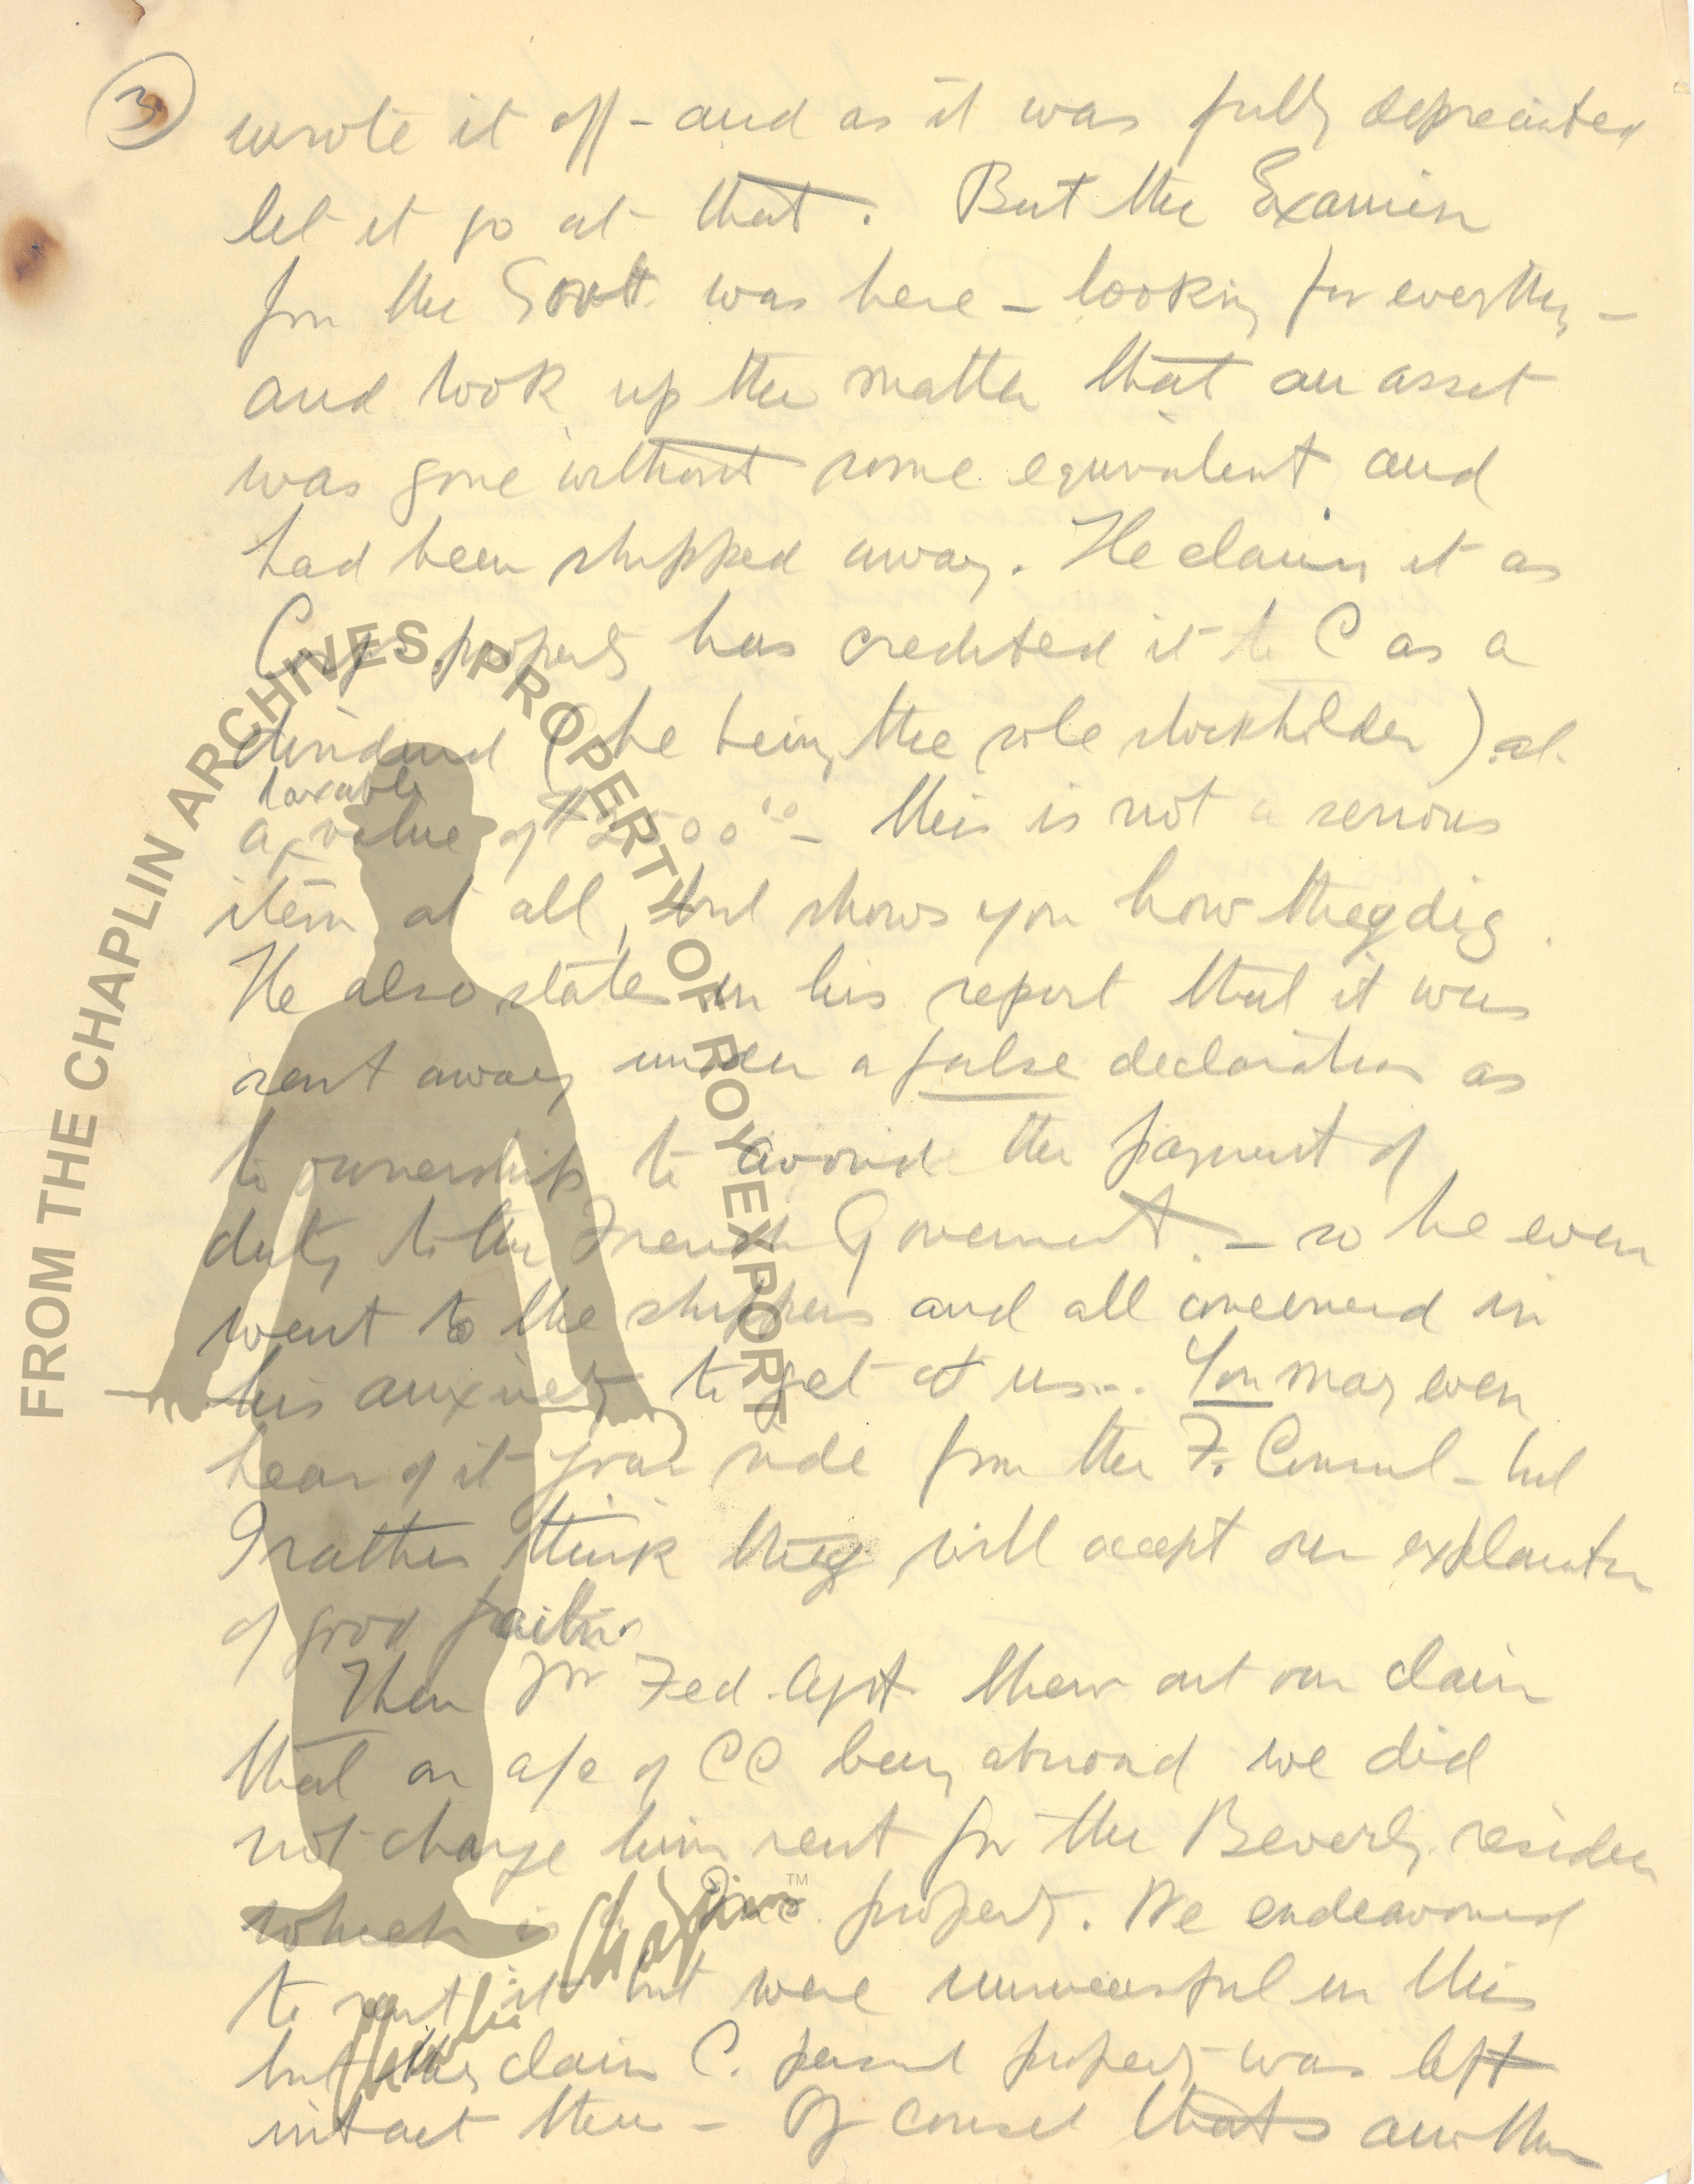 3
wrote it off - and as it was fully depreciated
let it go at that. But the Examiner
from the Govt. was here - looking for everything -
and took up the matter that an asset
was gone without some equivalent and
had been shipped away. He claims it as
Corp. property has credited it to C as a
dividend (he being the sole stockholder) at
taxable
a value of $2500.00 - this is not a serious
item at all, but shows you how they dig.
He also states in his report that it was
sent away under a false declaration as
to ownership to avoid the payment of
duty to the French Government. - so he even
went to the shippers and all concerned in
his anxiety to get at us... You may even
hear of it your side from the F. Consul - but
I rather think they will accept our explanation
of good faith.
Then Mr Fed. Agst. threw out our claim
that on a/c of CC being abroad we did
not charge him rent for the Beverly residence
which is property. We endeavoured
to rent it but were unsuccessful in this
but they claim C. personal property was left
intact there - Of course thats another
FROM THE CHAPLIN ARCHIVES. PROPERTY OF ROY EXPORT
Charlie Chaplin™